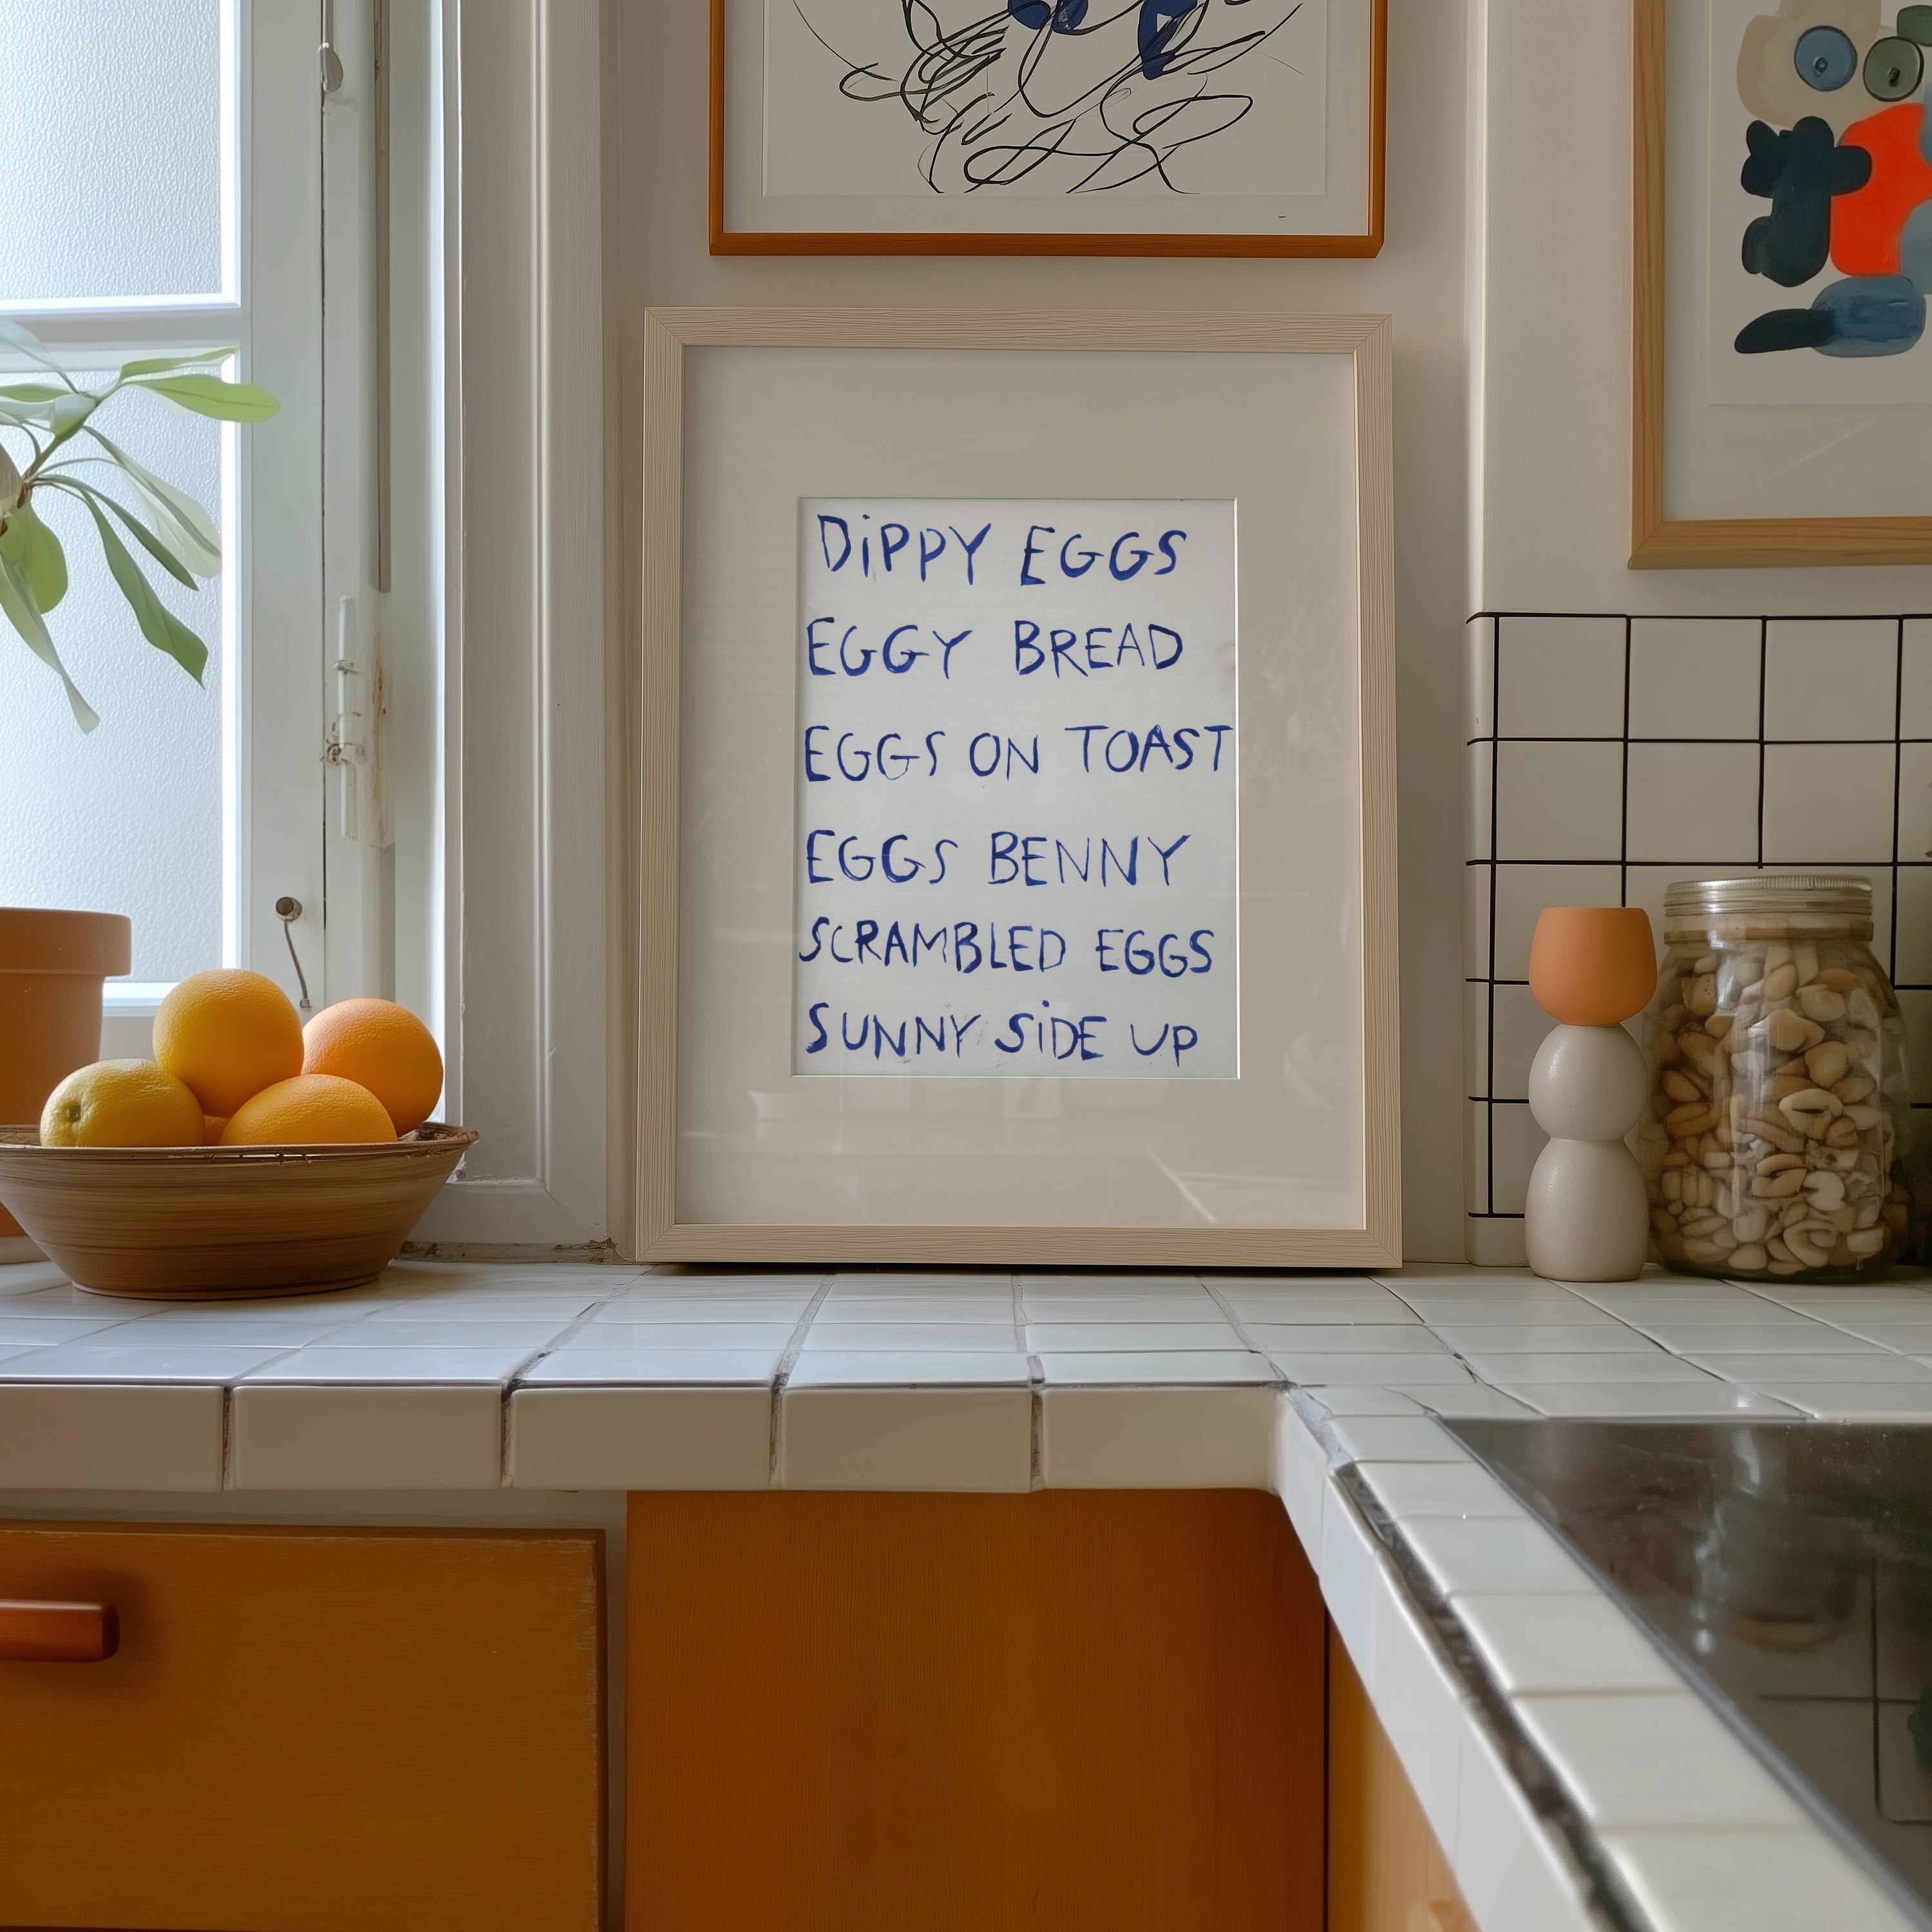 DiPPY EGGS
EGGY BREAD
EGGS ON TOAST
EGGS BENNY
SCRAMBLED EGGS
SUNNY SiDE UP